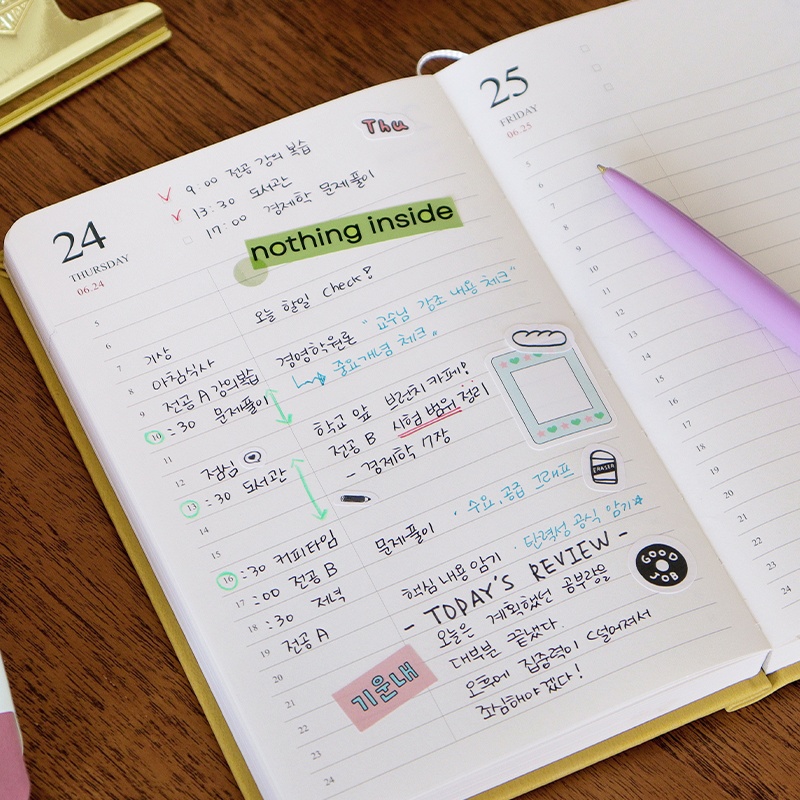 Thu
24
THURSDAY
06.24
9:00 전공 강의 복습
13:30 도서관
17:00 경제학 문제풀이
nothing inside
5
오늘 할일 check!
6
7 기상
경영학원론 "교수님 강조 내용 체크"
8 아침식사
중요개념 체크"
9 전공 A 강의복습
10:30 문제풀이
학교 앞 브런치 카페!
11
전공 B 시험 범위 정리
12 점심
- 경제학 7장
13:30 도서관
ERASER
14
15
문제풀이 · 수요, 공급 그래프
16:30 커피타임
핵심 내용 암기 · 탄력성 공식 암기☆
17:00 전공 B
- TODAY'S REVIEW -
GOOD JOB
18:30 저녁
오늘은 계획했던 공부량을
19 전공 A
대부분 끝냈다.
20
오후에 집중력이 떨어져서
21
조심해야겠다!
기운내
22
23
24
25
FRIDAY
06.25
5
6
7
8
9
10
11
12
13
14
15
16
17
18
19
20
21
22
23
24